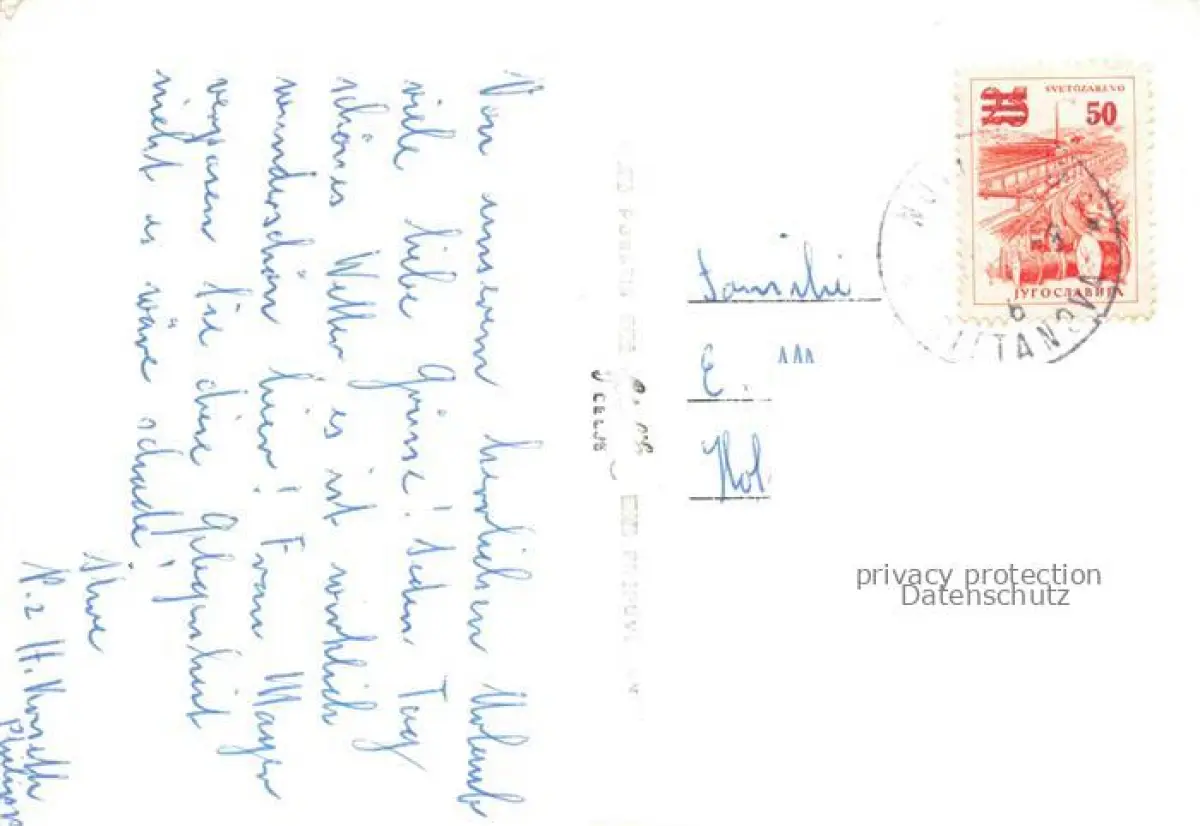 Von unserem herrlichen Urlaub
viele liebe Grüsse! Jeden Tag
schönes Wetter es ist wirklich
wunderschön hier! Frau Mayer
vergessen Sie diese Gelegenheit
nicht es wäre schade!
Ihre
P. 2 H.
SVETOZAREVO
50
ЈУГОСЛАВИЈА
Familie
E.
Hol
privacy protection
Datenschutz